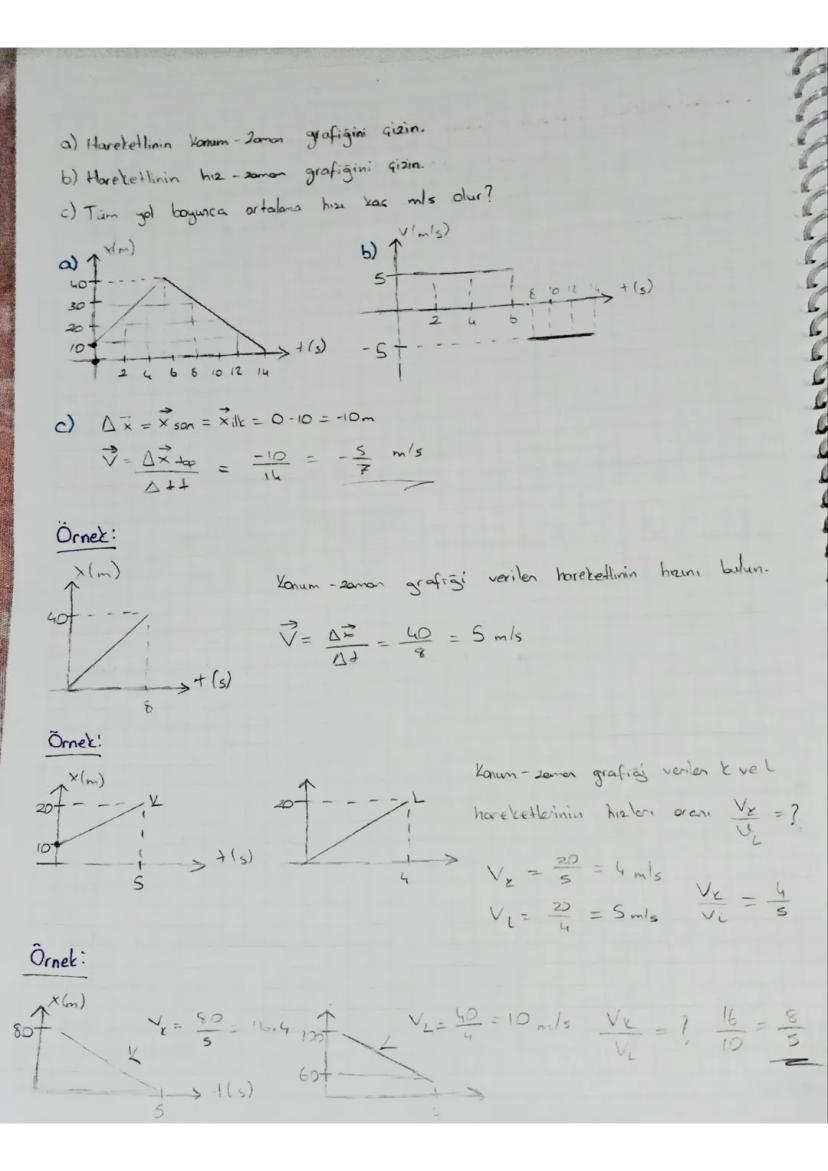 a) Hareketlinin konum-zaman grafiğini çizin.
b) Hareketlinin hız-zaman grafiğini çizin.
c) Tüm yol boyunca ortalama hızı kaç m/s olur?
a) x(m)
40
30
20
10
2 4 6 8 10 12 14 t(s)
b) V(m/s)
5
2 4 6 8 10 12 14 t(s)
-5
c) Δx = x son = x ilk = 0-10 = -10m
V = Δx top / Δtt = -10/14 = -5/7 m/s
Örnek:
x(m)
40
8 t(s)
Konum-zaman grafiği verilen hareketlinin hızını bulun.
V = Δx/Δt = 40/8 = 5 m/s
Örnek:
x(m)
20 K
10
5 t(s)
20 L
4
Konum-zaman grafiği verilen K ve L
hareketlerinin hızları oranı VK/VL = ?
VK = 20/5 = 4 m/s
VL = 20/4 = 5 m/s VK/VL = 4/5
Örnek:
x(m)
80
K
5 t(s)
VK = 80/5 = 16
L
60
VL = 40/4 = 10 m/s VK/VL = ? 16/10 = 8/5